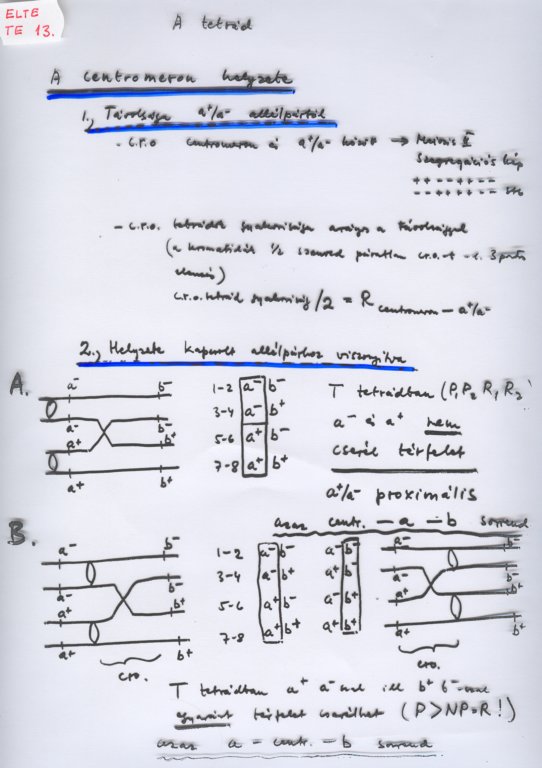 ELTE
TE 13.
A tetrád
A centromeron helyzete
1., Távolsága a+/a- allélpártól
- c.r.o centromeron és a+/a- között → Meiozis II
Szegregációs kép
++--++--
--++++-- stb
- c.r.o. tetrádok gyakorisága arányos a távolsággal
(a kromatidák 1/2 szenved páratlan cr.o.-t
c.r.o. tetrád gyakoriság/2 = R centromeron - a+/a-
2., Helyzete kapcsolt allélpárhoz viszonyítva
A.
a- b-
a- b-
a+ b+
a+ b+
1-2 a- b-
3-4 a- b+
5-6 a+ b-
7-8 a+ b+
T tetrádban (P1 P2 R1 R2)
a- és a+ nem
cserél térfelet
a+/a- proximális
azaz centr. - a - b sorrend
B.
a- b-
a- b-
a+ b+
a+ b+
cro.
1-2 a- b-
3-4 a- b+
5-6 a+ b-
7-8 a+ b+
a- b-
a+ b-
a- b+
a+ b+
a- b-
a- b-
a+ b+
a+ b+
cro.
T tetrádban a+ a-nal ill b+ b-nal
egyaránt térfelet cserélhet (P>NP=R!)
azaz a - centr. - b sorrend